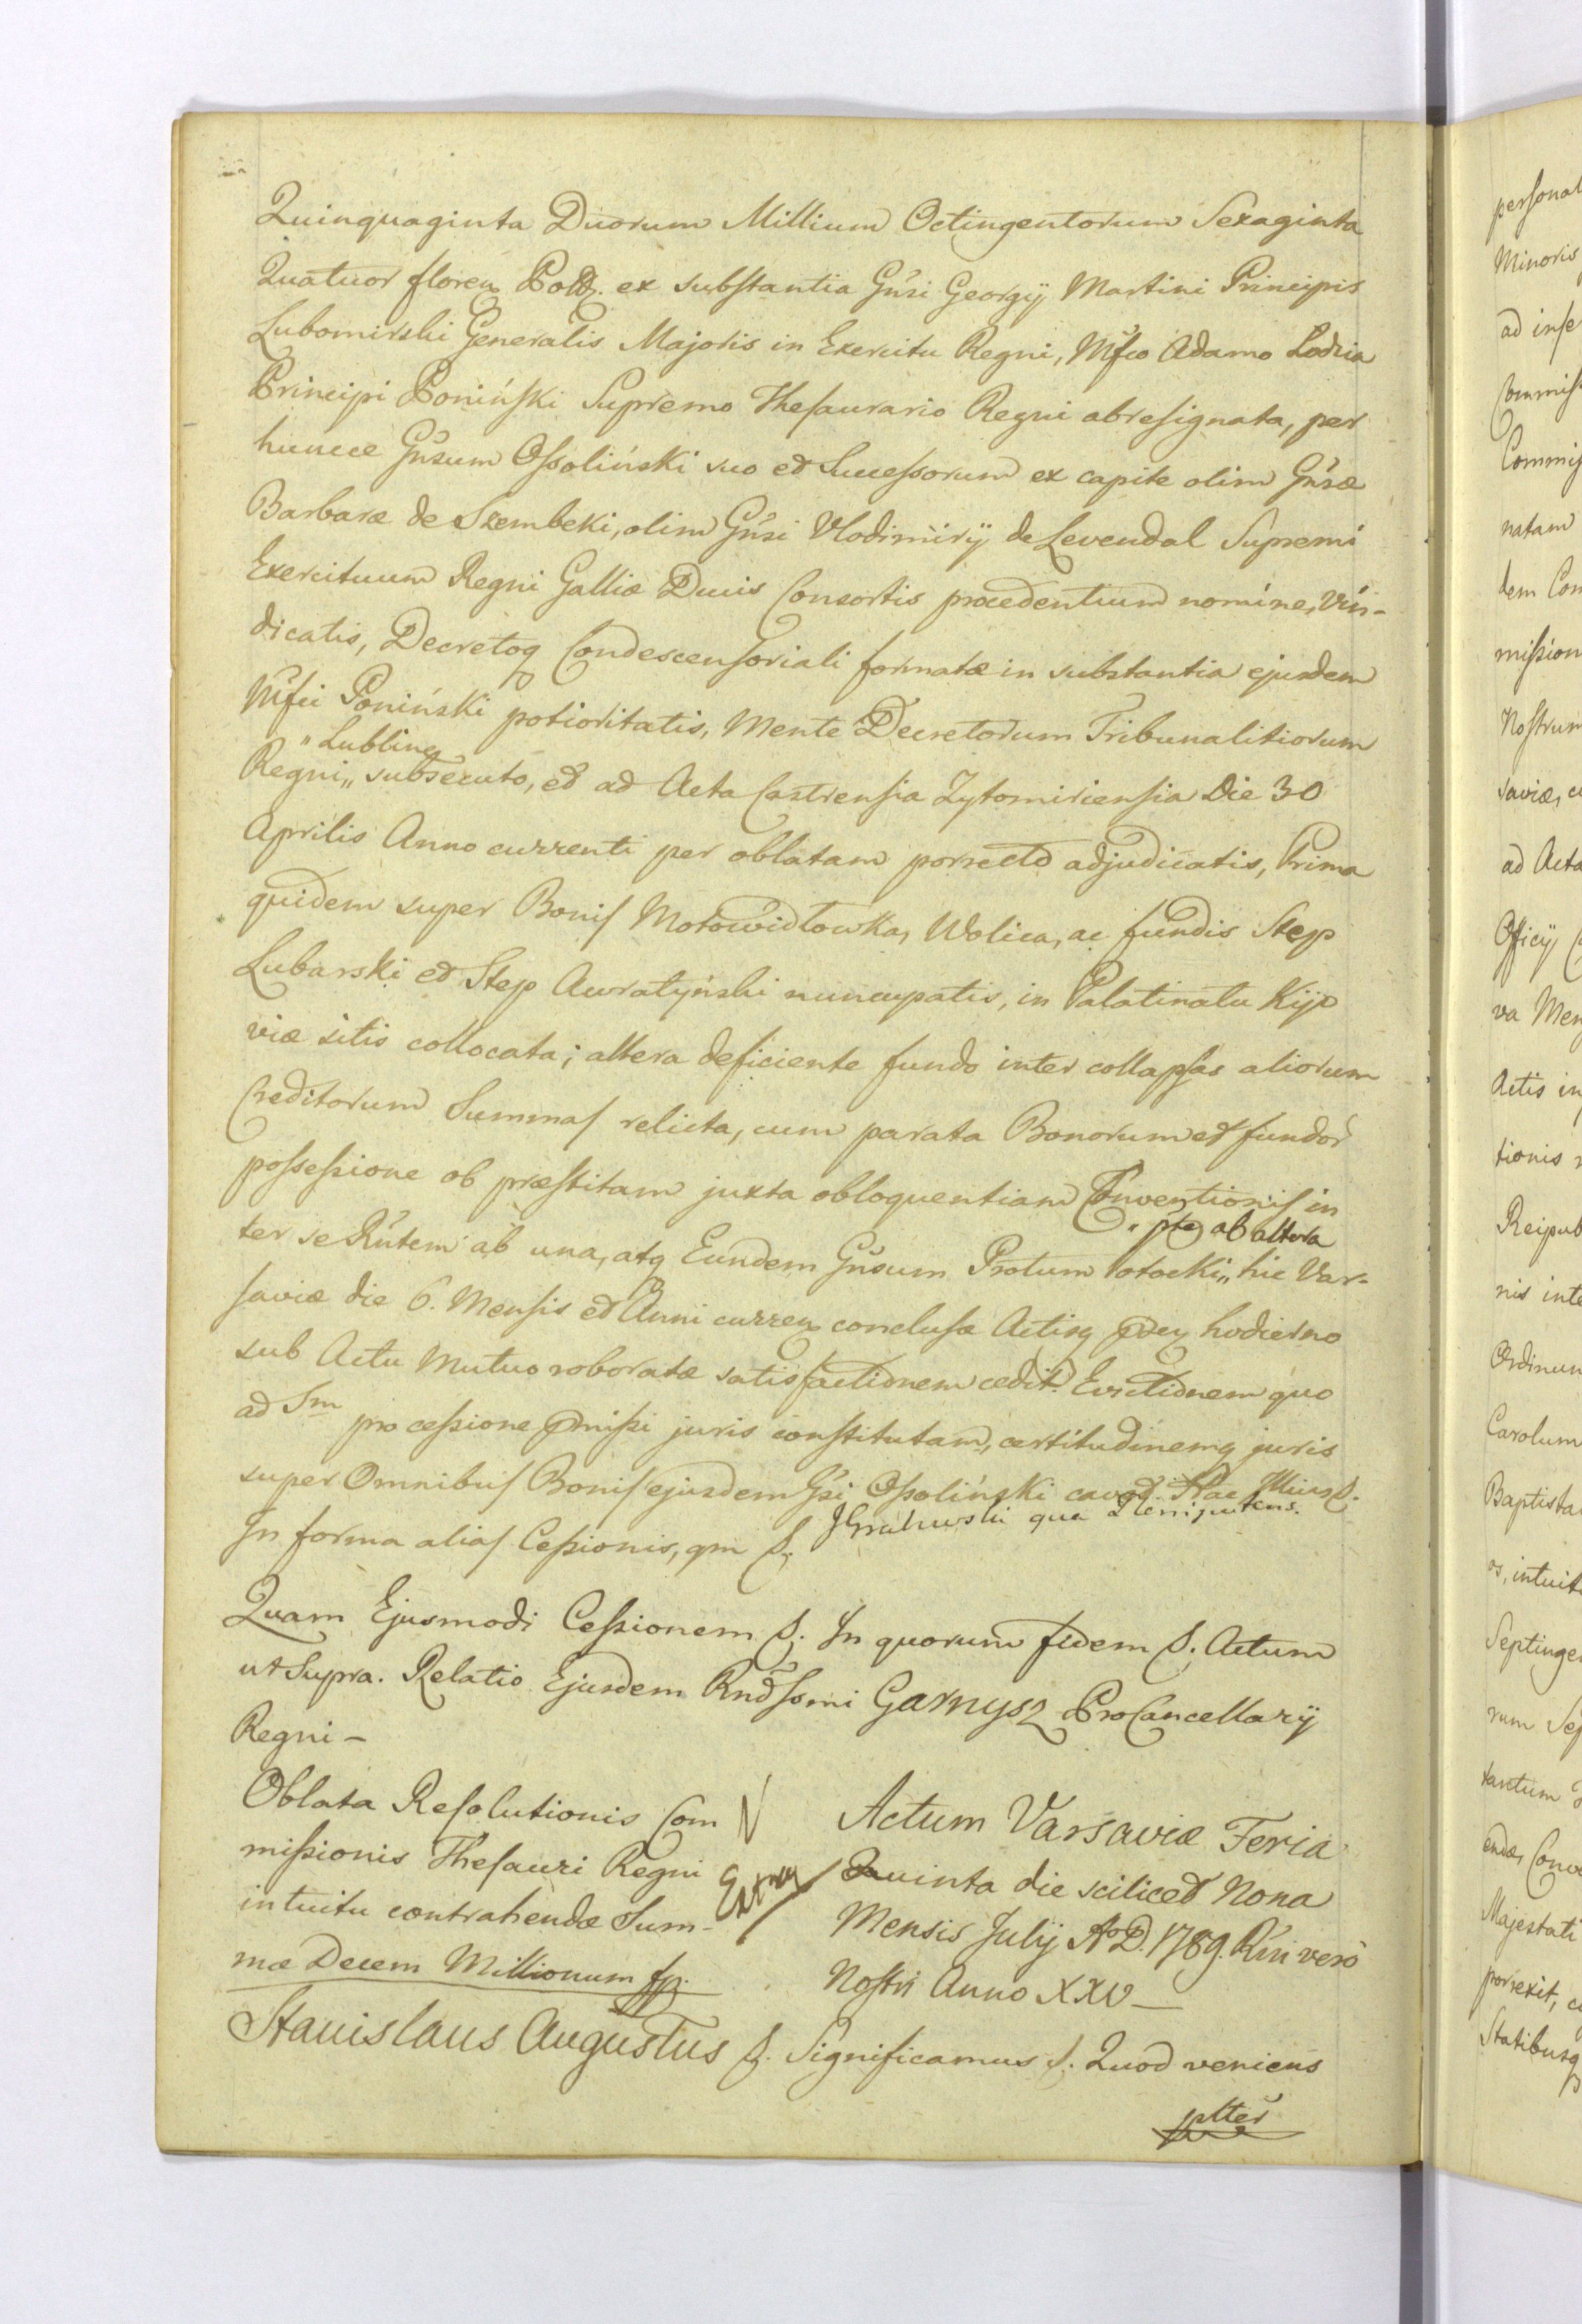 Quinquaginta Duorum Millium Octingentorum Sexaginta
Quatuor floren Pold. ex substantia Gńsi Georgij Martini Principis
Lubomirski Generalis Majoris in Exercitu Regni, Mfco Adamo Lodzia
Principi Poniński Supremo Thesaurario Regni abresignata, per
huncce Gńsum Ossoliński suo et Sucessorum ex capite olim Gńsæ
Barbaræ de Szembeki, olim Gńsi Vlodimirij de Levendal Supremi
Exercituum Regni Galliæ Ducis Consortis procedentium nomine, Vin-
dicatis, Decretoq Condescensoriali formatæ in substantia ejusdem
Mfci Poniński potioritatis, Mente Decretorum Tribunalitiorum
" Lublinen
Regni,, subsecuto, et ad Acta Castrensia Zytomiriensia Die 30
Aprilis Anno currenti per oblatam porrecto adjudicatis, Prima
quidem super Bonis Motowidłowka, Wolica, ac fundis Step
Lubarski et Step Awratyński nuncupatis, in Palatinatu Kijo
viæ sitis collocata; altera deficiente fundo inter collapsas aliorum
Creditorum Summas relicta, cum parata Bonorum et fundor
possessione ob præstitam juxta obloquentiam Conventionis in
" pte ab altera
ter se Rńtem ab una, atq Eundem Gńsum Protum Potocki,, hic Var-
saviæ die 6. Mensis et Anni curren conclusæ Actisq pden hodierno
sub Actu Mutuo roboratæ satisfactionem cedit. Evictionem quo
ad Sm pro cessione pmissi juris constitutam, certitudinemq juris
super Omnibus Bonis ejusdem Gsi Ossoliński cavet.
In forma alias Cessionis, qm S. JGrabowski qua Plenipotens.
Quam Ejusmodi Cessionem S. In quorum fidem S. Actum
ut Supra. Relatio Ejusdem Rndssmi Garnysz ProCancellarij
Regni –
Oblata Resolutionis Com
missionis Thesauri Regni
intuitu contrahendæ Sum-
mæ Decem Millionum fp.
Actum Varsaviæ Feria
Quinta die scilicet Nona
Mensis Julij A° D. 1789. Rńi vero
Nostri Anno XXV –
Stanislaus Augustus S. Significamus S. Quod veniens
ptter